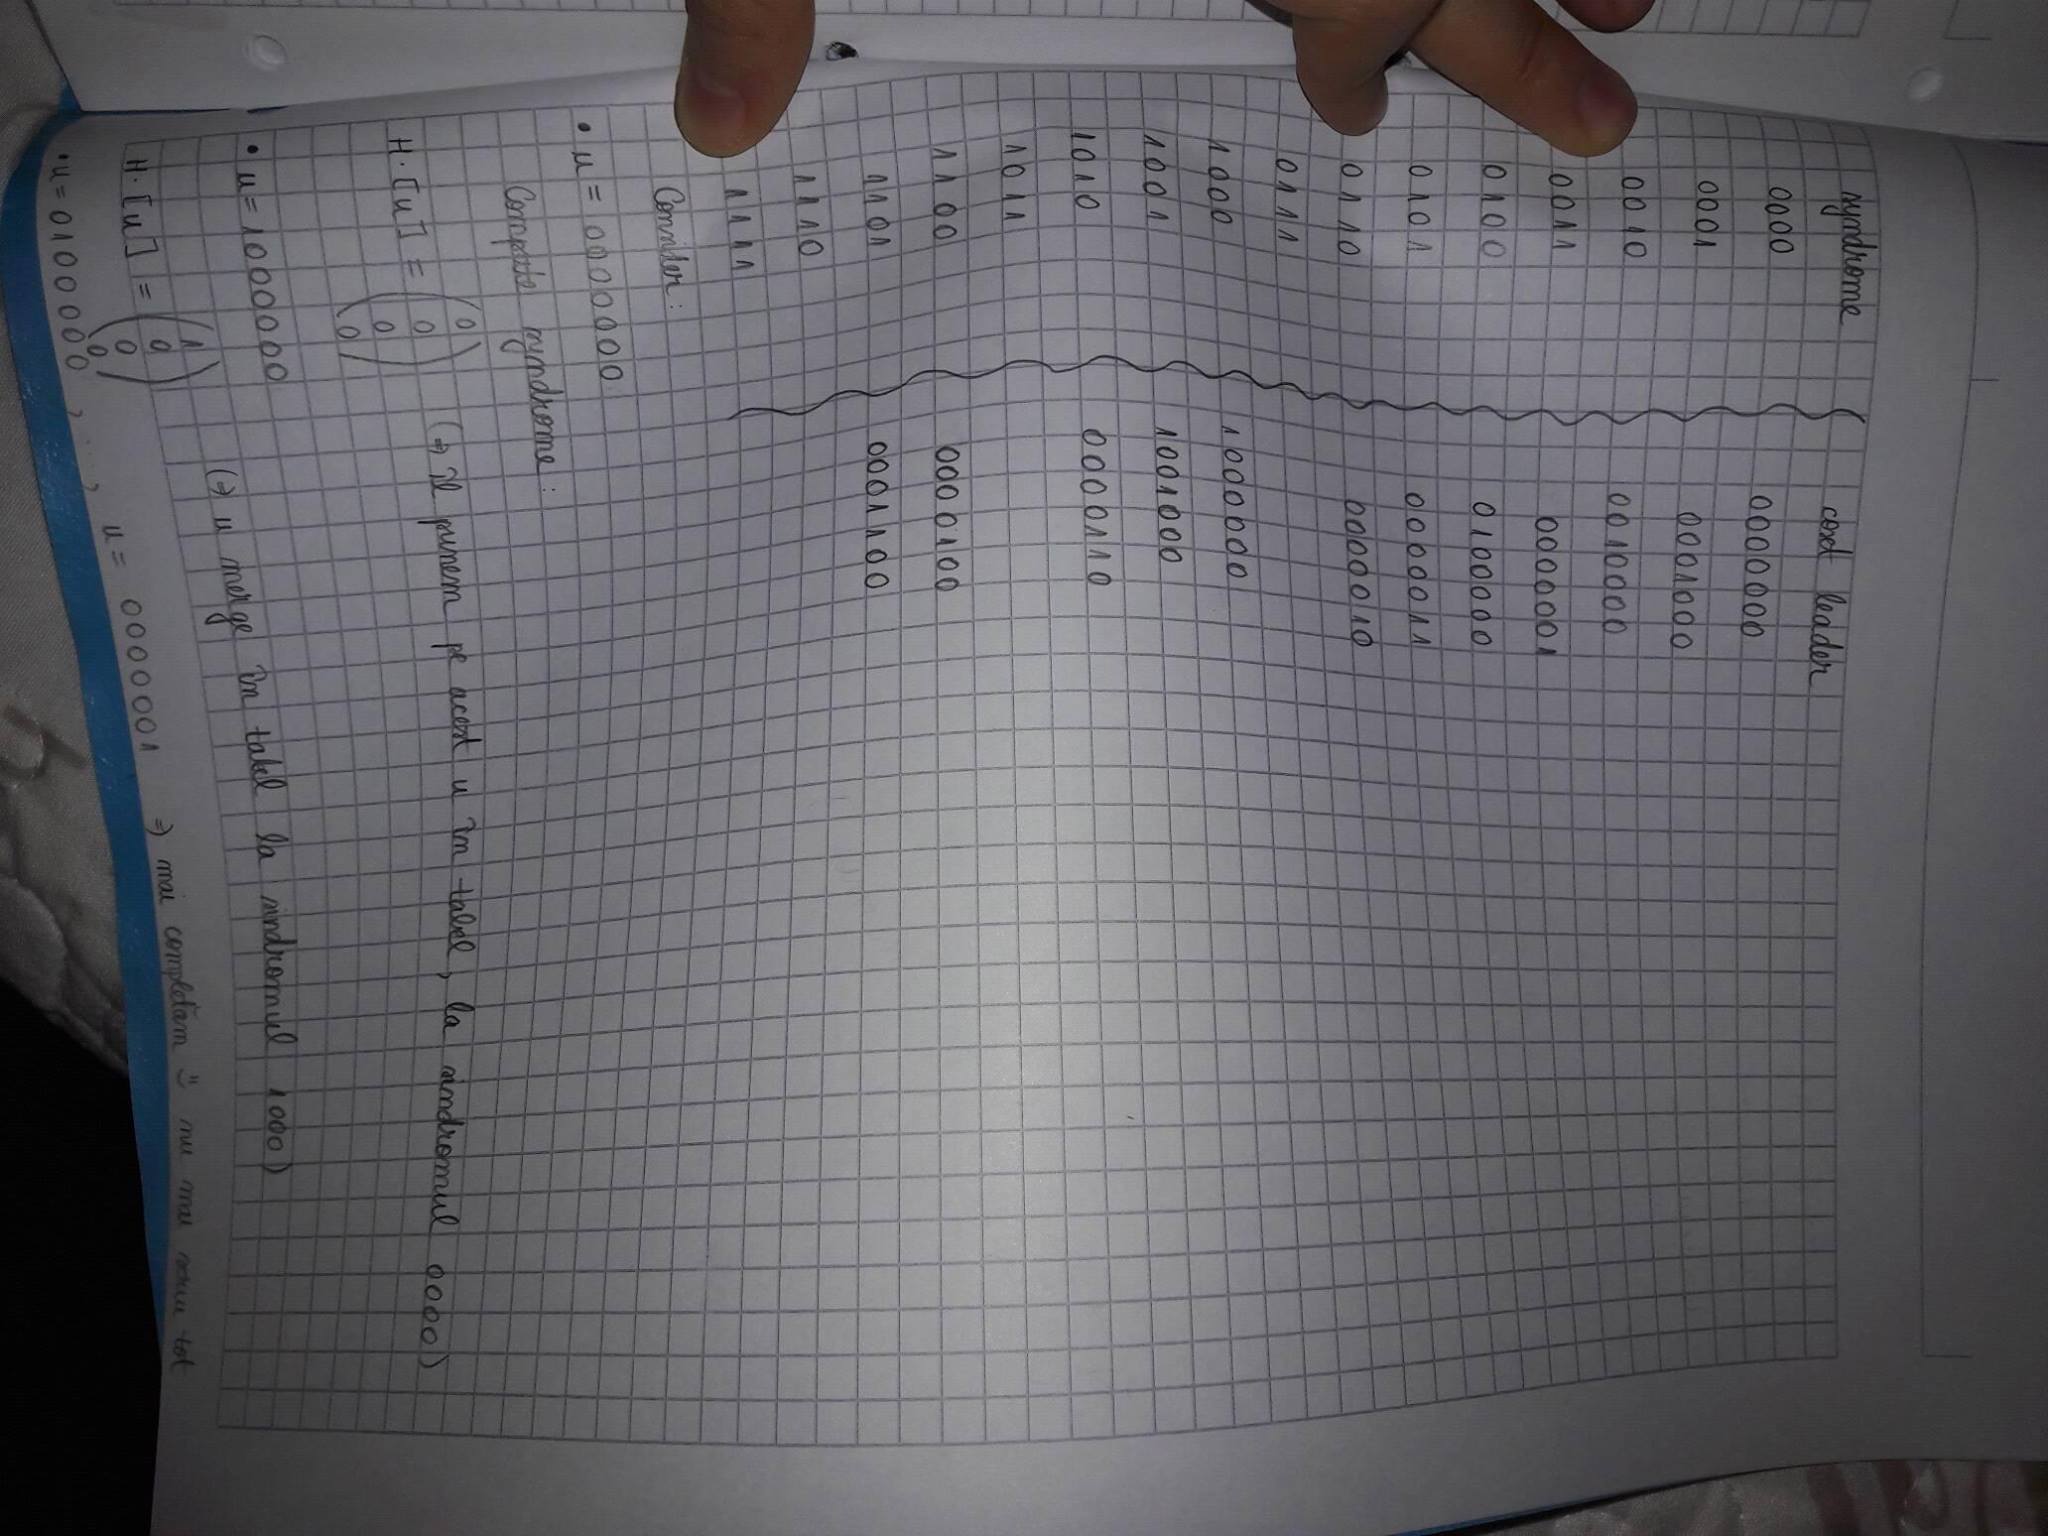 syndrome coset leader
0000 0000000
0001 0001000
0010 0010000
0011 0000001
0100 0100000
0101 0000011
0110 0000010
0111
1000 1000000
1001 1001000
1010 0000110
1011
1100 0000100
1101 0001100
1110
1111
Consider:
• u = 0000000
Compute syndrome:
H·[u] = (0 0 0 0) (⇒ îl punem pe acest u în tabel, la sindromul 0000)
• u = 1000000
H·[u] = (1 0 0 0) (⇒ u merge în tabel la sindromul 1000)
• u = 0100000, ..., u = 0000001 ⇒ mai completăm :) nu mai scriu tot